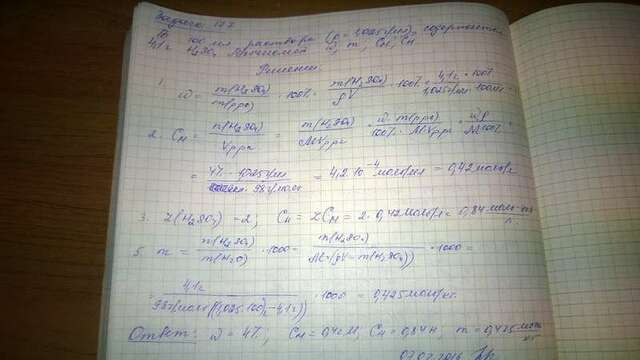 Задача № 7
В 100 мл раствора (ρ = 1,025 г/мл) содержится
4,1 г H₂SO₃ m, Cм, Cн
Решение
1. ω = m(H₂SO₃)/m(рра) · 100% = m(H₂SO₃)/ρV · 100% = 4,1г · 100%/1,025 г/мл · 100мл =
2. Cм = n(H₂SO₃)/Vрра = m(H₂SO₃)/MVрра = ω · m(рра)/100% · MVрра = ωρ/M100% =
= 4% · 1,025г/мл/98г/моль = 4,2·10⁻⁴ моль/мл = 0,42 моль/л
3. Z(H₂SO₃) = 2, Cн = ZCм = 2 · 0,42 моль/л = 0,84 моль-экв/л
5. m = n(H₂SO₃)/m(H₂O) · 1000 = m(H₂SO₃)/M(ρV − m(H₂SO₃)) · 1000 =
= 4,1г/98г/моль(1,025·100 − 4,1г) · 1000 = 0,425 моль/кг
Ответ: ω = 4%, Cм = 0,42М, Cн = 0,84 н, m = 0,425 моль/кг
07.02.2016